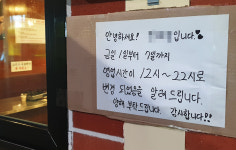 안녕하세요? 입니다.
금일 1일부터 7일까지
영업시간이 12시~22시로
변경 되었음을 알려 드립니다.
양해 부탁드립니다. 감사합니다.